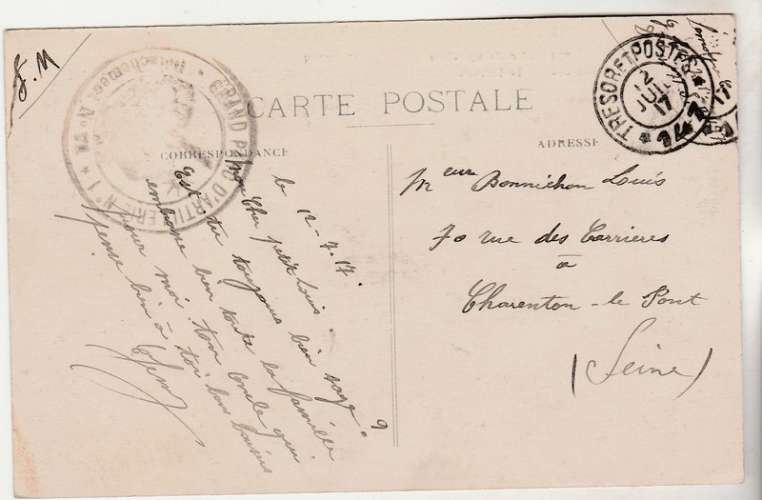 F. M
GRAND PARC D'ARTILLERIE N° 1
TRESOR ET POSTES
12
JUIL
17
* 147 *
CARTE POSTALE
CORRESPONDANCE
ADRESSE
le 12-7-17.
Mon cher petit Louis.
Est tu toujours bien sage ?
embrasse bien toute la famille
pour moi ton oncle qui
pense bien à toi bons baisers
Meur Bonnichon Louis
70 rue des Carrieres
à
Charenton-le Pont
(Seine)